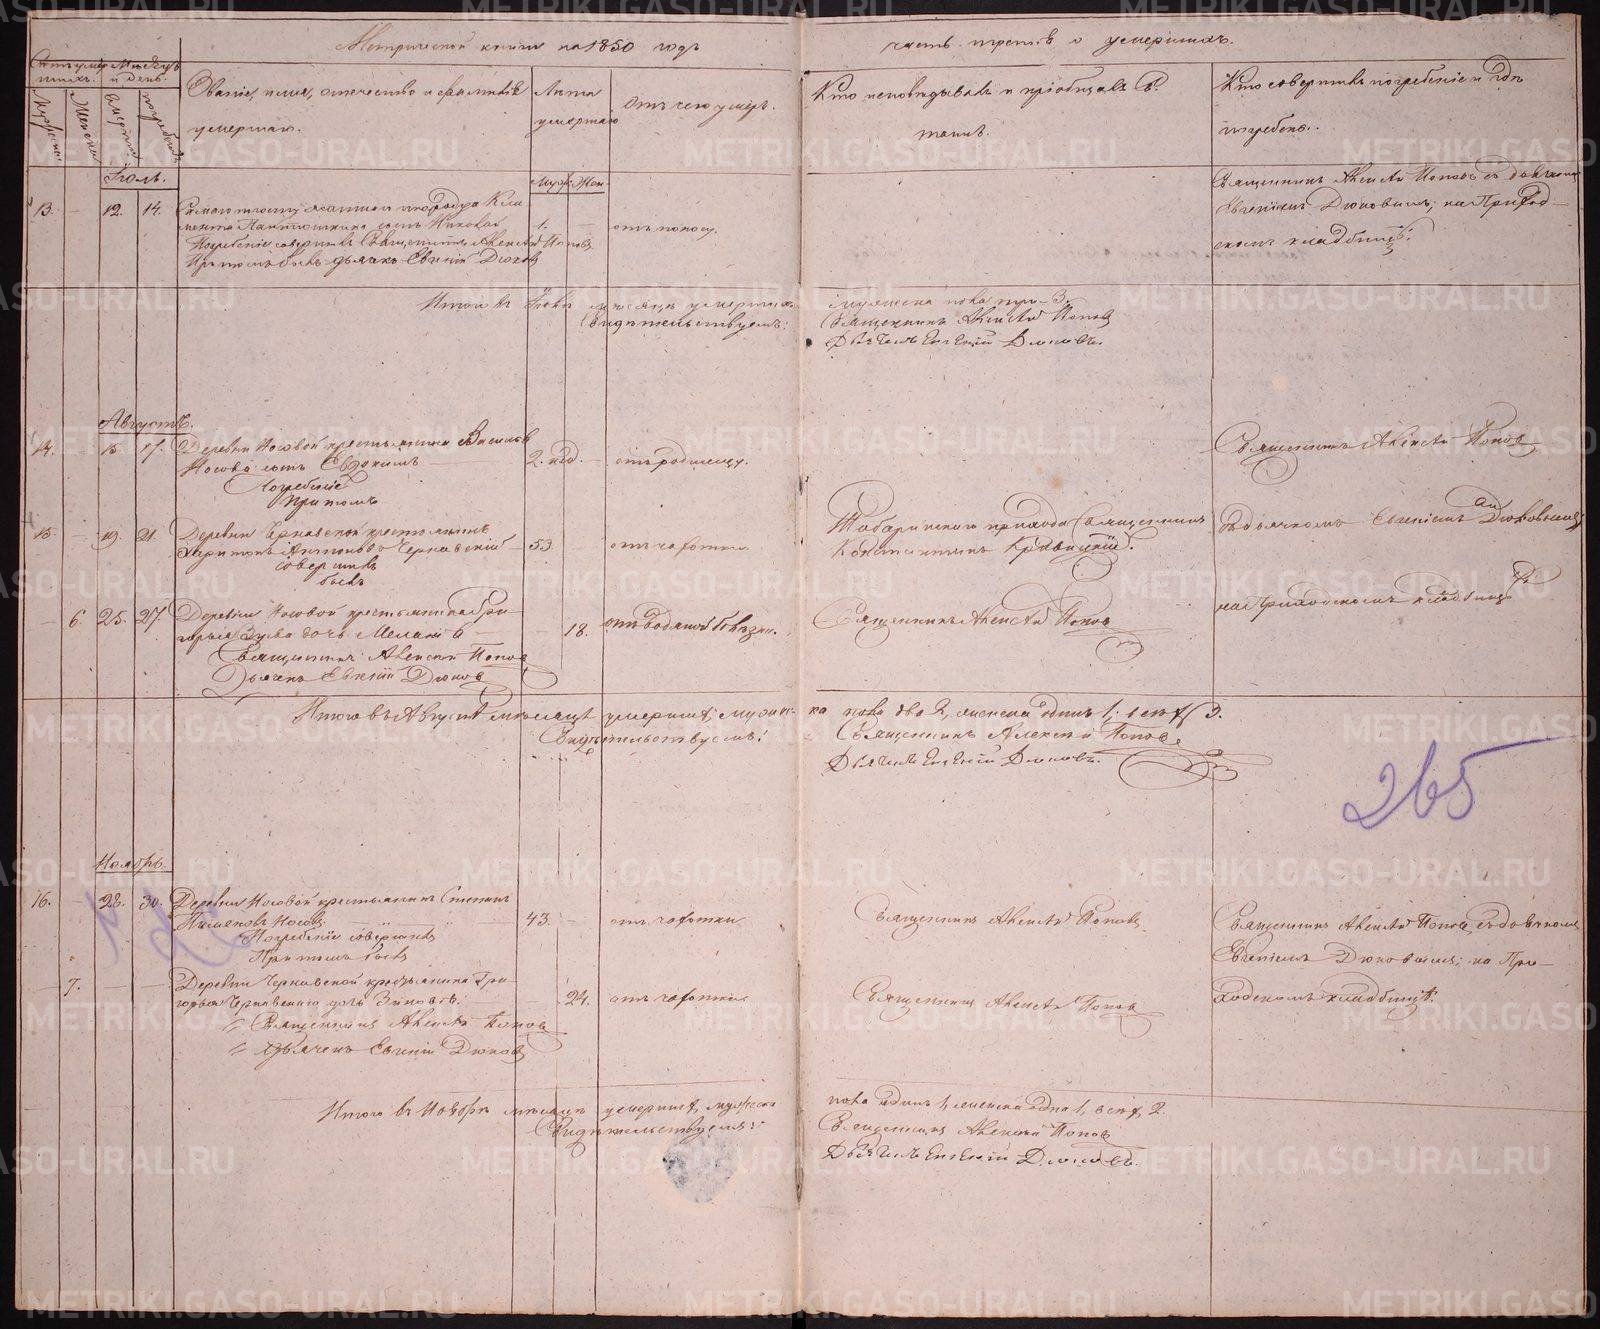 Метрической книги на 1850 годъ
часть третія о умершихъ.
Счетъ умершихъ.
Мѣсяцъ и день.
Званіе, имя, отечество и фамилія
умершаго.
Лѣта
умершаго
Отъ чего умеръ.
Кто исповѣдывалъ и пріобщалъ С.
таинъ.
Кто совершилъ погребеніе и гдѣ
погребенъ.
Мужеска
Женска
смерти
погребенія
Іюль.
Муж. Жен.
13. — 12. 14.
сынъ Николай
1. —
отъ поносу.
Погребеніе совершилъ Священникъ Алексѣй Поповъ
При томъ былъ дьячекъ Евгеній Дюковъ
Священникъ Алексѣй Поповъ съ дьячкомъ
Евгеніемъ Дюковымъ; на Приход-
скомъ кладбищѣ.
Итого въ Іюлѣ мѣсяцѣ умершихъ
мужеска пола три—3.
Свидѣтельствуемъ:
Священникъ Алексѣй Поповъ
Дьячекъ Евгеній Дюковъ.
Августъ.
14. — 15. 17. Деревни Носовой крестьянина Василья
Носова сынъ Евдокимъ
2. нед. —
отъ родимцу.
Священникъ Алексѣй Поповъ
Погребеніе
При томъ
15. — 19. 21. Деревни Чернавской крестьянинъ
Харитонъ Антоновъ Чернавскій
53. —
отъ чахотки.
Табаринскаго прихода Священникъ
Константинъ
съ дьячкомъ Евгеніемъ Дюковымъ;
совершилъ
былъ
— 6. 25. 27. Деревни Носовой крестьянина Гри-
горья Зуева дочь Меланія
— 18.
отъ водяной болѣзни.
Священникъ Алексѣй Поповъ
на Приходскомъ кладбищѣ
Священникъ Алексѣй Поповъ
Дьячекъ Евгеній Дюковъ
Итого въ Августѣ мѣсяцѣ умершихъ, мужес-
ка пола два 2, женска одна 1, всего 3.
Свидѣтельствуемъ:
Священникъ Алексѣй Поповъ
Дьячекъ Евгеній Дюковъ.
265
Ноябрь.
16. — 28. 30. Деревни Носовой крестьянинъ Степанъ
Пименовъ Носовъ
43. —
отъ чахотки
Священникъ Алексѣй Поповъ
Священникъ Алексѣй Поповъ съ дьячкомъ
Погребеніе совершилъ
При томъ былъ
Евгеніемъ Дюковымъ; на При-
ходскомъ кладбищѣ.
— 7. — — Деревни Чернавской крестьянина Гри-
горья Чернавскаго дочь Зиновія.
24.
отъ чахотки
Священникъ Алексѣй Поповъ
Священникъ Алексѣй Поповъ
Дьячекъ Евгеній Дюковъ
Итого въ Ноябрѣ мѣсяцѣ умершихъ, мужеска
пола одинъ 1, женска одна 1, всего 2.
Свидѣтельствуемъ:
Священникъ Алексѣй Поповъ
Дьячекъ Евгеній Дюковъ.
METRIKI.GASO-URAL.RU